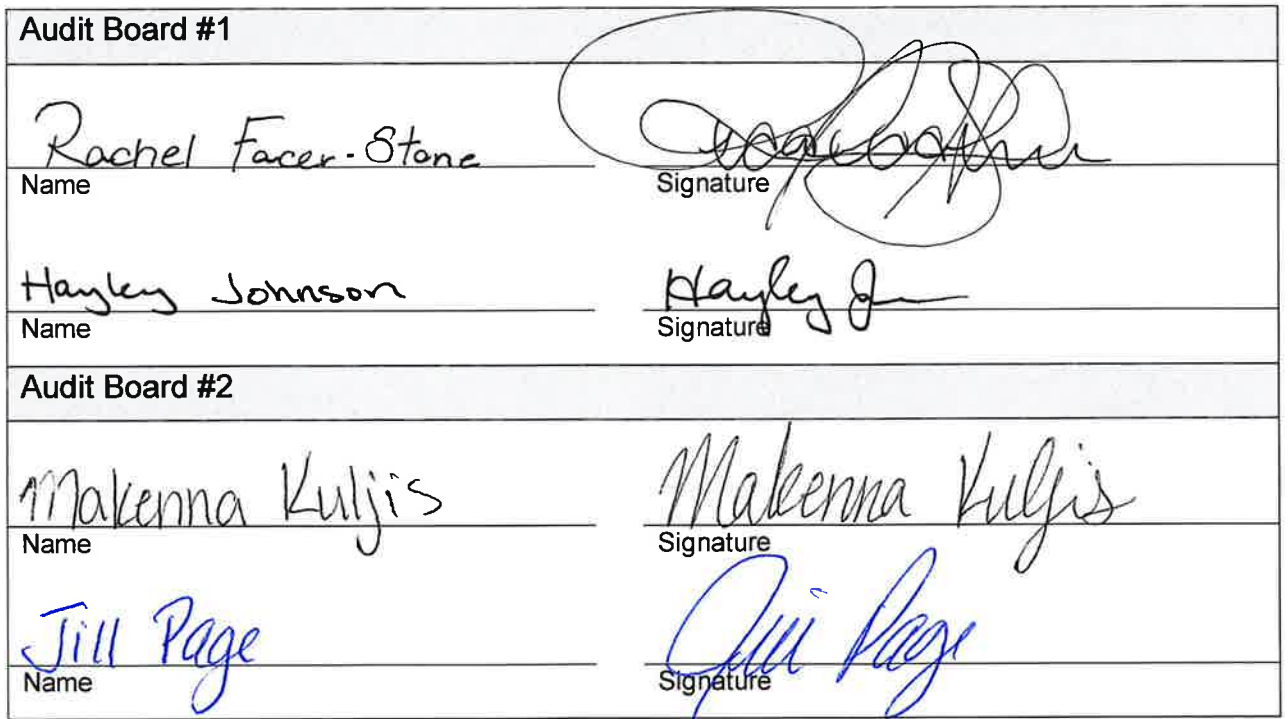 Audit Board #1
Rachel Facer-Stone
Name Signature
Hayley Johnson Hayley J
Name Signature
Audit Board #2
Makenna Kuljis Makenna Kuljis
Name Signature
Jill Page Jill Page
Name Signature